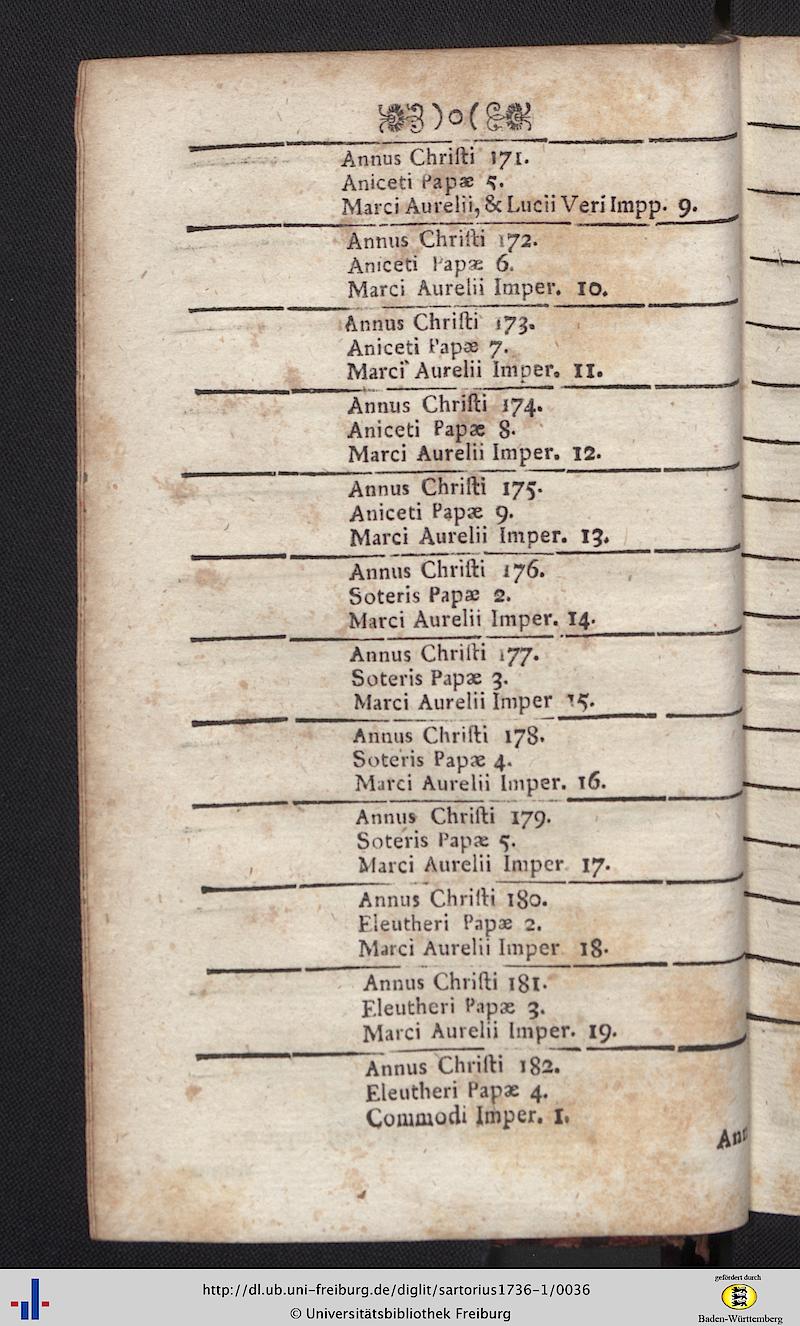 )o(
Annus Chriſti 171.
Aniceti Papæ 5.
Marci Aurelii, & Lucii Veri Impp. 9.
Annus Chriſti 172.
Aniceti Papæ 6.
Marci Aurelii Imper. 10.
Annus Chriſti 173.
Aniceti Papæ 7.
Marci Aurelii Imper. 11.
Annus Chriſti 174.
Aniceti Papæ 8.
Marci Aurelii Imper. 12.
Annus Chriſti 175.
Aniceti Papæ 9.
Marci Aurelii Imper. 13.
Annus Chriſti 176.
Soteris Papæ 2.
Marci Aurelii Imper. 14.
Annus Chriſti 177.
Soteris Papæ 3.
Marci Aurelii Imper 15.
Annus Chriſti 178.
Soteris Papæ 4.
Marci Aurelii Imper. 16.
Annus Chriſti 179.
Soteris Papæ 5.
Marci Aurelii Imper. 17.
Annus Chriſti 180.
Eleutheri Papæ 2.
Marci Aurelii Imper 18.
Annus Chriſti 181.
Eleutheri Papæ 3.
Marci Aurelii Imper. 19.
Annus Chriſti 182.
Eleutheri Papæ 4.
Commodi Imper. 1.
http://dl.ub.uni-freiburg.de/diglit/sartorius1736-1/0036
© Universitätsbibliothek Freiburg
gefördert durch
Baden-Württemberg